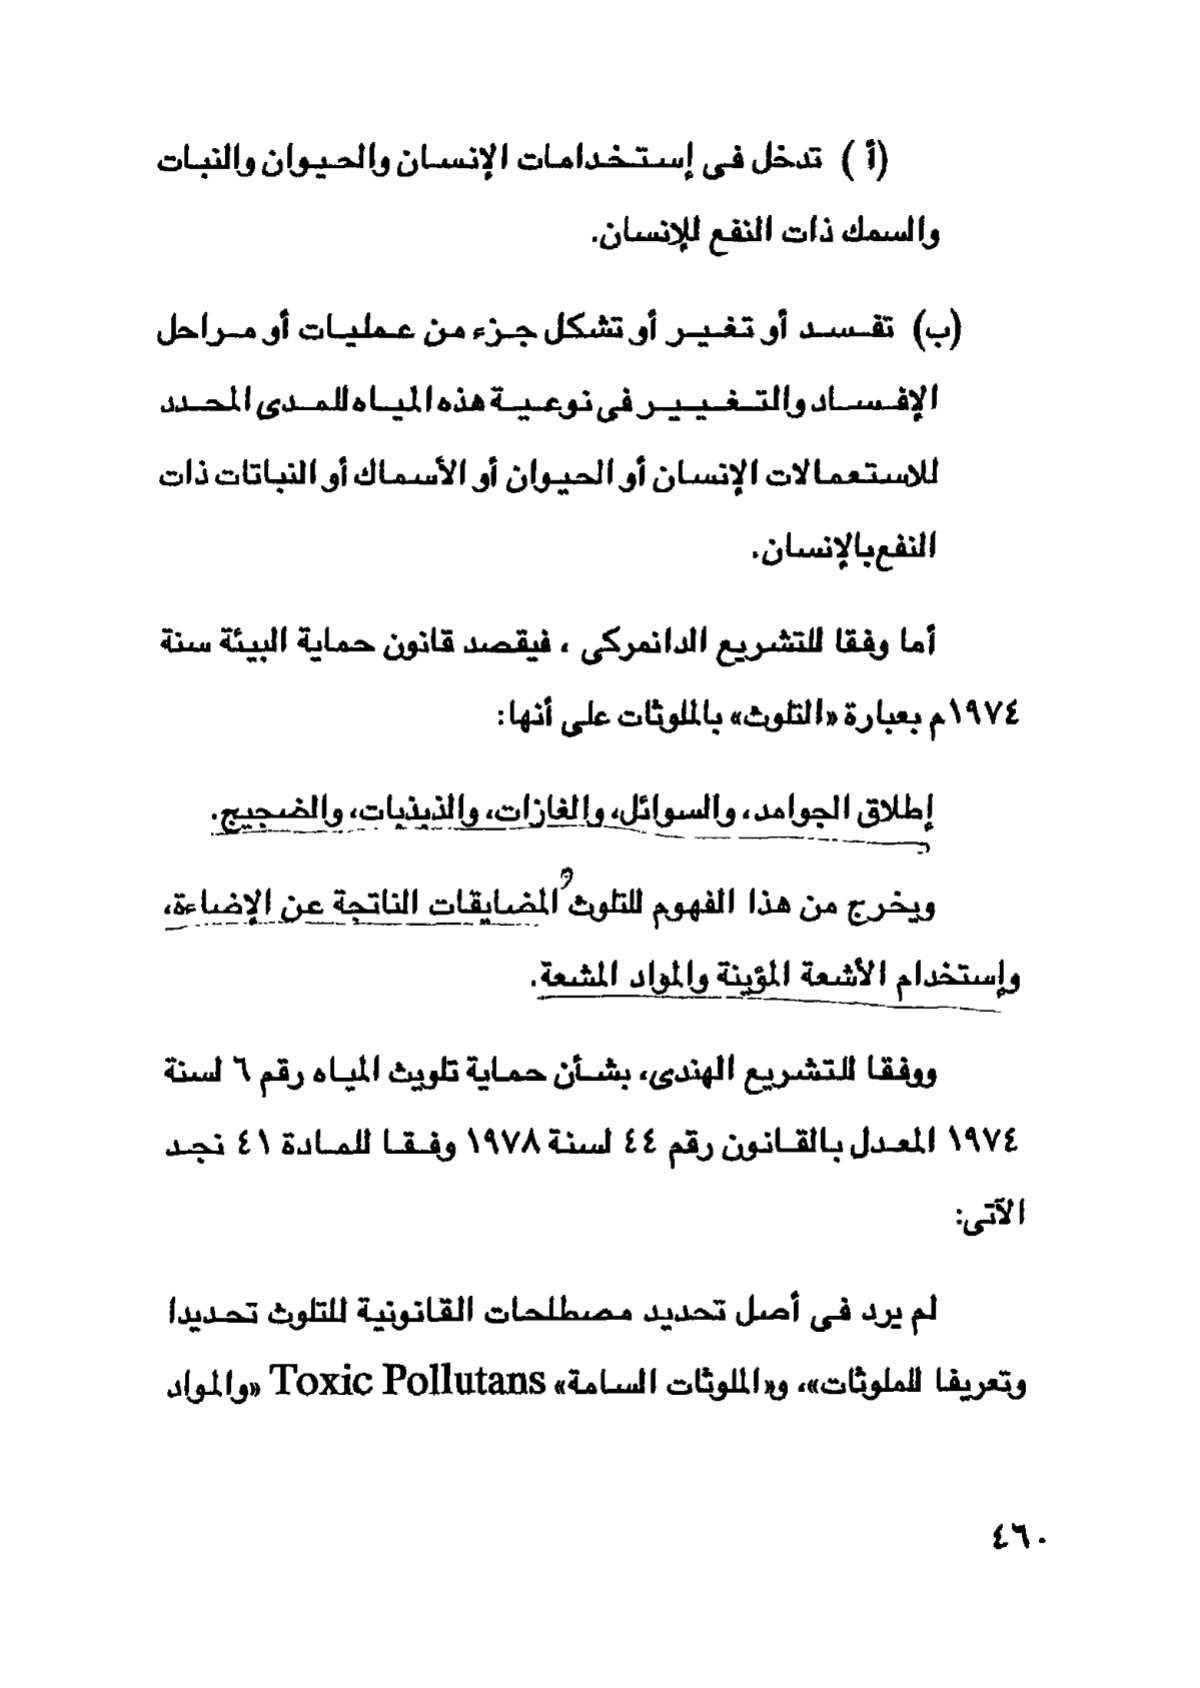 (أ ) تدخل فى إستخدامات الإنسان والحيوان والنبات
والسمك ذات النفع للإنسان.
(ب) تفسد أو تغير أو تشكل جزء من عمليات أو مراحل
الإفساد والتغيير فى نوعية هذه المياه للمدى المحدد
للاستعمالات الإنسان أو الحيوان أو الأسماك أو النباتات ذات
النفع بالإنسان.
أما وفقا للتشريع الدانمركى ، فيقصد قانون حماية البيئة سنة
١٩٧٤م بعبارة «التلوث» بالملوثات على أنها:
إطلاق الجوامد، والسوائل، والغازات، والذبذبات، والضجيج.
ويخرج من هذا الفهوم للتلوث و المضايقات الناتجة عن الإضاءة،
وإستخدام الأشعة المؤينة والمواد المشعة.
ووفقا للتشريع الهندى، بشأن حماية تلويث المياه رقم ٦ لسنة
١٩٧٤ المعدل بالقانون رقم ٤٤ لسنة ١٩٧٨ وفقا للمادة ٤١ نجد
الآتى:
لم يرد فى أصل تحديد مصطلحات القانونية للتلوث تحديدا
وتعريفا للملوثات»، و«الملوثات السامة» Toxic Pollutans «والمواد
٤٦٠